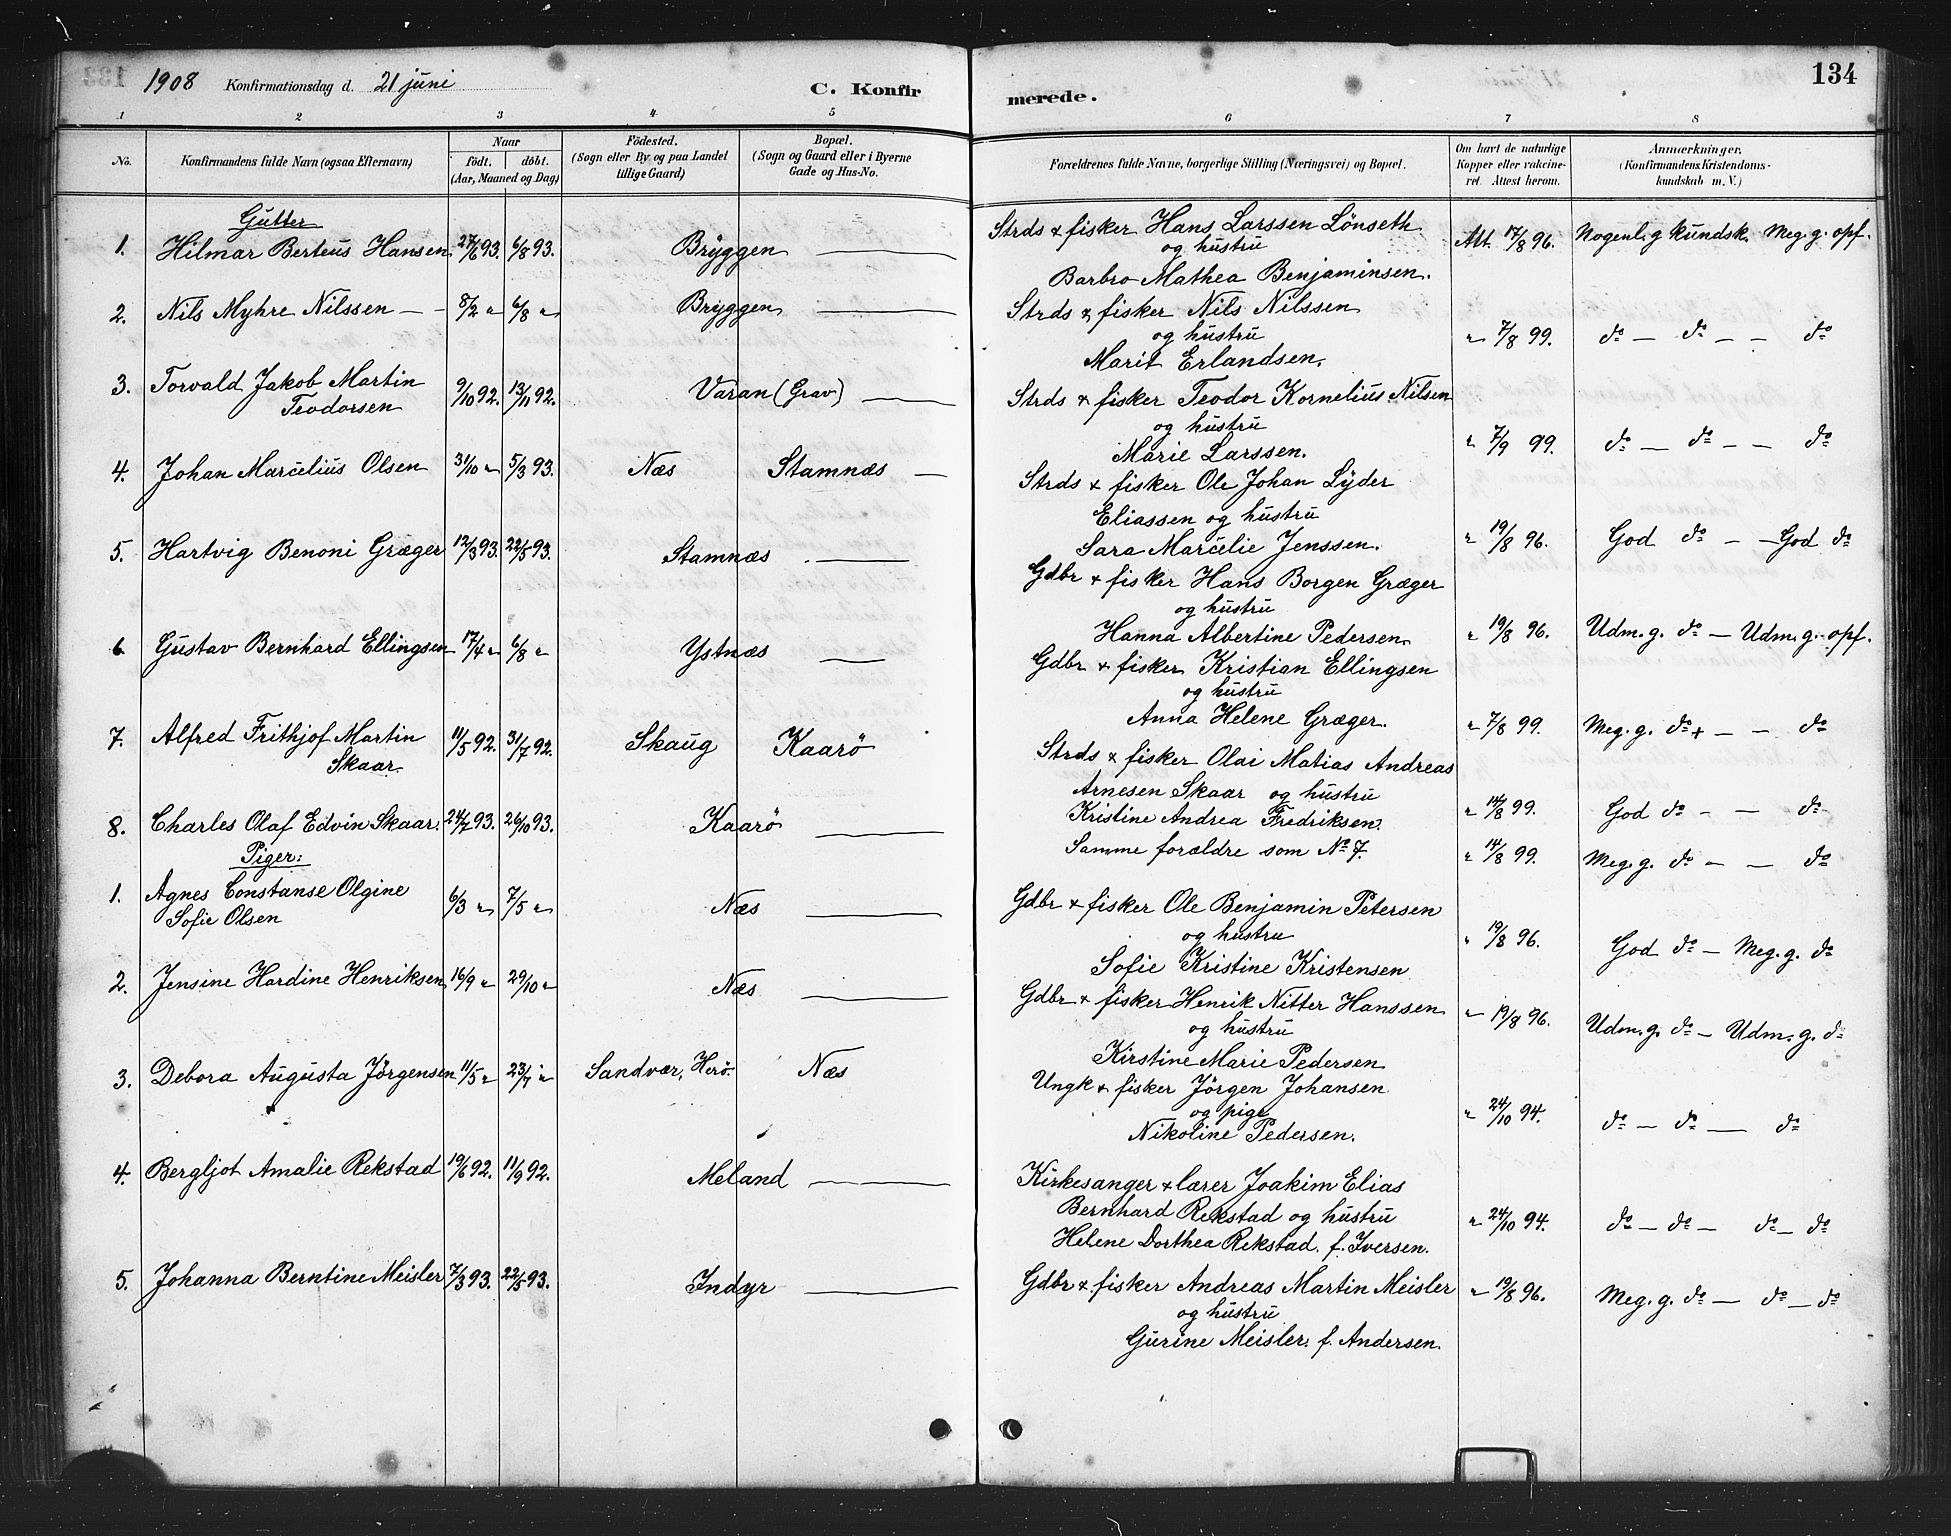 1908 Konfirmationsdag d. 21 juni
C. Konfir
merede.
134
1 2 3 4 5 6 7 8
No.
Konfirmandens fulde Navn (ogsaa Efternavn)
Naar
født. døbt.
(Aar, Maaned og Dag)
Födested.
(Sogn eller By og paa Landet
tillige Gaard)
Bopæl.
(Sogn og Gaard eller i Byerne
Gade og Hus-No.
Forældrenes fulde Navne, borgerlige Stilling (Næringsvei) og Bopæl.
Om havt de naturlige
Kopper eller vakcine-
ret. Attest herom.
Anmærkninger.
(Konfirmandens Kristendoms-
kundskab m. V.)
Gutter
1. Hilmar Berteus Hansen 27/6 93. 6/8 93. Bryggen —
Strds & fisker Hans Larssen Lönseth
og hustru
Barbro Mathea Benjaminsen.
Att. 17/8 96. Nogenl. g kundsk. Meg. g. opf.
2. Nils Myhre Nilssen — - 8/2 " 6/8 " Bryggen —
Strds & fisker Nils Nilssen
og hustru
Marit Erlandsen.
" 7/8 99. do — do — — do
3. Torvald Jakob Martin
Teodorsen 9/10 92. 13/11 92. Varan (Grav) —
Strds & fisker Teodor Kornelius Nilsen
og hustru
Marie Larssen.
" 7/9 99. do — do — — do
4. Johan Marcelius Olsen 31/10 " 5/3 93. Næs Stamnæs —
Strds & fisker Ole Johan Lyder
Eliassen og hustru
Sara Marcelie Jenssen.
" 19/8 96. God do — — God do
5. Hartvig Benoni Græger 12/3 93. 22/5 93. Stamnæs —
Gdbr & fisker Hans Borgen Græger
og hustru
Hanna Albertine Pedersen
" 19/8 96. Udm. g. do — Udm. g. opf.
6 Gustav Bernhard Ellingsen 17/4 " 6/8 " Ystnæs —
Gdbr & fisker Kristian Ellingsen
og hustru
Anna Helene Græger.
" 7/8 99. Meg. g. do + — — do
7. Alfred Frithjof Martin
Skaar. 11/5 92. 31/7 92. Skaug Kaarö
Strds & fisker Olai Matias Andreas
Arnesen Skaar og hustru
Kristine Andrea Fredriksen.
" 14/8 99. God do - — do
8. Charles Olaf Edvin Skaar. 24/7 93. 26/10 93. Kaarö —
Samme forældre som No 7.
" 14/8 99. Meg. g. do — — do
Piger:
1. Agnes Constanse Olgine
Sofie Olsen 6/3 " 7/5 " Næs —
Gdbr & fisker Ole Benjamin Petersen
og hustru
Sofie Kristine Kristensen
" 19/8 96. God do — Meg. g. do
2. Jensine Hardine Henriksen 16/9 " 29/10 " Næs —
Gdbr & fisker Henrik Nitter Hanssen
og hustru
Kirstine Marie Pedersen
" 19/8 96. Udm. g. do — Udm. g. do
3. Debora Augusta Jörgensen 11/5 " 23/7 " Sandvær, Herö. Næs
Ungk & fisker Jörgen Johansen
og pige
Nikoline Pedersen.
" 24/10 94. do — do — do
4. Bergljot Amalie Rekstad 19/6 92. 11/9 92. Meland —
Kirkesanger & lærer Joakim Elias
Bernhard Rekstad og hustru
Helene Dorthea Rekstad. f. Iversen.
" 24/10 94. do — do — do — do
5. Johanna Berntine Meisler 7/3 93. 22/5 93. Indyr —
Gdbr & fisker Andreas Martin Meisler
og hustru
Gurine Meisler. f. Andersen.
" 19/8 96. Meg. g. do — do — do